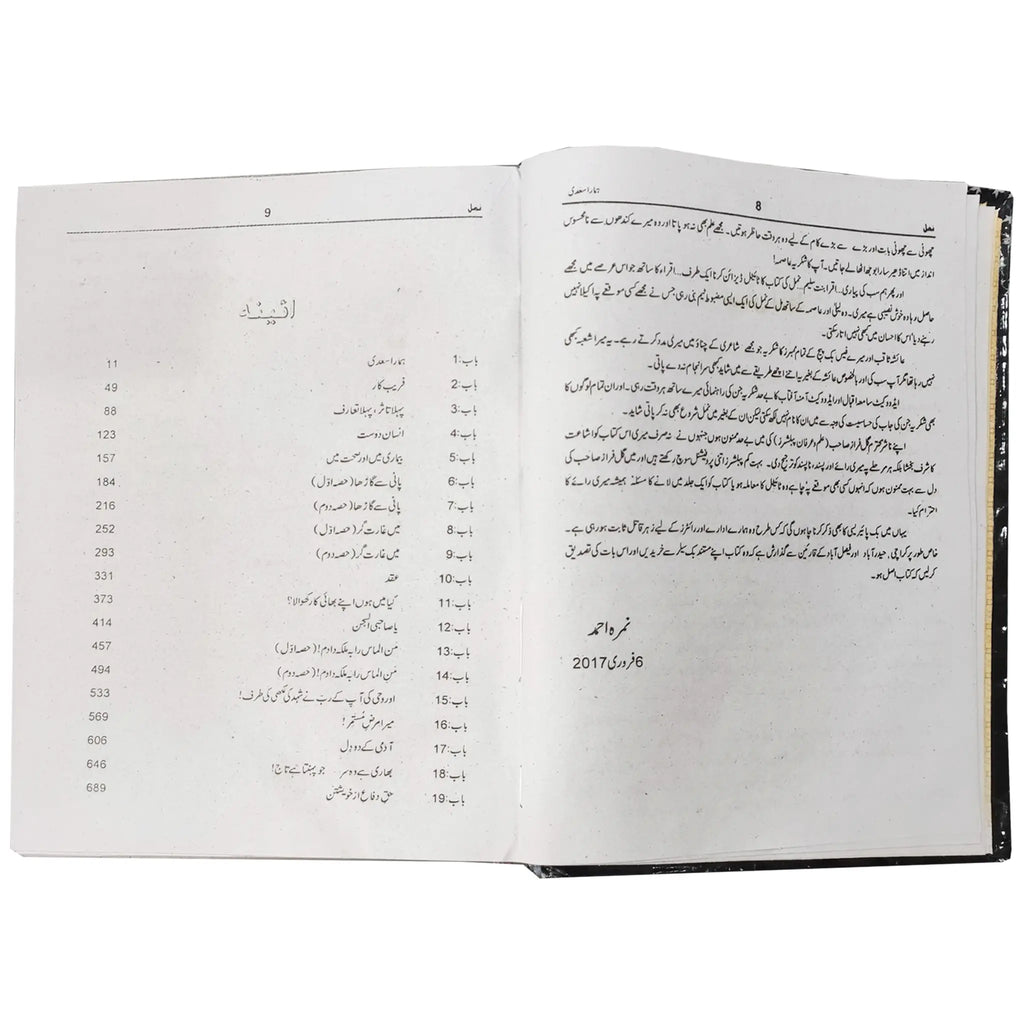 نمل 8 ہمارا سعدی
چھوٹی سے چھوٹی بات اور بڑے سے بڑے کام کے لیے وہ ہر وقت حاظر ہوتیں۔ مجھے علم بھی نہ ہو پاتا اور وہ میرے کندھوں سے نامحسوس
انداز میں اتنا ڈھیر سارا بوجھ اٹھالے جاتیں۔ آپ کا شکریہ عاصمہ!
اور پھر ہم سب کی پیاری...اقرا بنت سلیم...نمل کی کتاب کا ٹائیٹل ڈیزائن کرنا ایک طرف...اقراء کا ساتھ جو اس عرصے میں مجھے
حاصل رہا وہ خوش نصیبی ہے میری۔ وہ لبنیٰ اور عاصمہ کے ساتھ مل کے نمل کی ایک ایسی مضبوط ٹیم بنی رہی جس نے مجھے کسی موقعے پہ اکیلا نہیں
رہنے دیا اس کا احسان میں کبھی نہیں اتار سکتی۔
عائشہ ثاقب اور میرے فیس بک پیج کے تمام ممبرز کا شکریہ جو مجھے شاعری کے چناؤ میں میری مدد کرتے رہے۔ یہ میرا شعبہ کبھی
نہیں رہا تھا مگر آپ سب کی اور بالخصوص عائشہ کے بغیر یہ اتنے اچھے طریقے سے میں شاید کبھی سرانجام نہ دے پاتی۔
ایڈووکیٹ سامعہ اقبال اور ایڈووکیٹ آمنہ آفتاب کا بے حد شکریہ جن کی راہنمائی میرے ساتھ ہر وقت رہی۔ اور ان تمام لوگوں کا
بھی شکریہ جن کی جاب کی حساسیت کی وجہ سے میں ان کا نام نہیں لکھ سکتی لیکن ان کے بغیر میں نمل شروع بھی نہ کر پاتی شاید۔
اپنے ناشر محترم گل فراز صاحب (علم و عرفان پبلشرز) کی میں بے حد ممنون ہوں جنہوں نے نہ صرف میری اس کتاب کو اشاعت
کا شرف بخشا بلکہ ہر مرحلے پہ میری رائے اور پسند، ناپسند کو ترجیح دی۔ بہت کم پبلشرز اتنی پروفیشنل سوچ رکھتے ہیں اور میں گل فراز صاحب کی
دل سے بہت ممنون ہوں کہ انہوں کسی بھی موقعے پہ چاہے وہ ٹائیٹل کا معاملہ ہو یا کتاب کو ایک جلد میں لانے کا مسئلہ ہمیشہ میری رائے کا
احترام کیا۔
یہاں میں بک پائیریسی کا بھی ذکر کرنا چاہوں گی کہ کس طرح وہ ہمارے ادارے اور رائٹرز کے لیے زہر قاتل ثابت ہو رہی ہے۔
خاص طور پر کراچی، حیدرآباد اور فیصل آباد کے قارئین سے گذارش ہے کہ وہ کتاب اپنے مستند بک سیلر سے خریدیں اور اس بات کی تصدیق
کر لیں کہ کتاب اصل ہو۔
نمرہ احمد
6 فروری 2017
نمل 9
ائینہ
باب:1 ہمارا سعدی 11
باب:2 فریب کار 49
باب:3 پہلا تاثر، پہلا تعارف 88
باب:4 انسان دوست 123
باب:5 بیماری میں اور صحت میں 157
باب:6 پانی سے گاڑھا (حصہ اوّل) 184
باب:7 پانی سے گاڑھا (حصہ دوم) 216
باب:8 میں غارت گر (حصہ اوّل) 252
باب:9 میں غارت گر (حصہ دوم) 293
باب:10 عقد 331
باب:11 کیا میں ہوں اپنے بھائی کا رکھوالا؟ 373
باب:12 یا صاحبی السّجن 414
باب:13 مَن الماس را بہ ملکہ دادم! (حصہ اوّل) 457
باب:14 مَن الماس را بہ ملکہ دادم! (حصہ دوم) 494
باب:15 اور وحی کی آپ کے ربّ نے شہد کی مکھی کی طرف! 533
باب:16 میرا مرضِ مُستمر! 569
باب:17 آدمی کے دو دِل 606
باب:18 بھاری ہے وہ سر جو پہنتا ہے تاج! 646
باب:19 حقِ دفاع از خویشتن 689